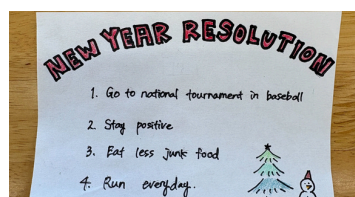 NEW YEAR RESOLUTION
1. Go to national tournament in baseball
2. Stay positive
3. Eat less junk food
4. Run everyday.